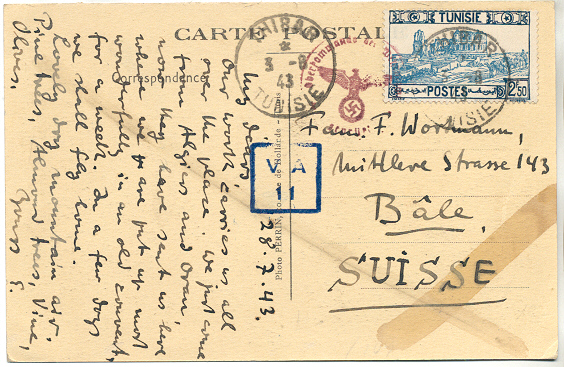 CARTE POSTALE
Correspondence
THIBAR
3 -8
43
TUNISIE
Oberkommando der
TUNISIE
POSTES
2,50
THIBAR
8
TUNISIE
V A
11
Photo PERRIN, de Hollande - Paris
Fam. F. Wortmann,
Mittlere Strasse 143
Bâle
SUISSE
28.7.43.
My dears,
Our work carries us all
over the place. We just come
from Algiers and Oran,
now they have sent us here
where we are put up most
wonderfully in an old convent,
for a week. In a few days
we shall fly home.
Lovely dry mountain air.
Pine trees, Almond trees, Vine,
Olives,
Yours